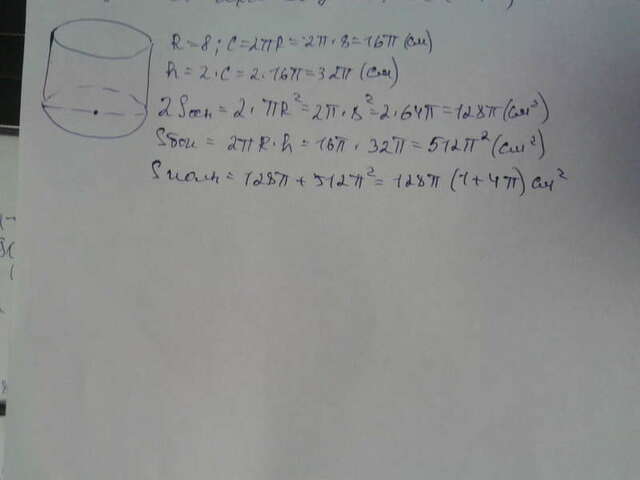 R=8; C=2πR=2π·8=16π (см)
h=2·C=2·16π=32π (см)
2Sосн=2·πR²=2π·8²=2·64π=128π (см²)
Sбок=2πR·h=16π·32π=512π² (см²)
Sполн=128π+512π²=128π(1+4π) см²